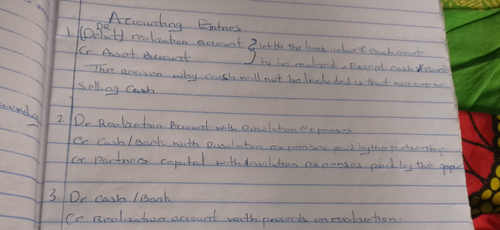 Accounting Entries
1. (Debit) Dr realization account } with the book value of each asset
Cr Asset Account } to be realized, except cash & Bank
The reason why cash will not be included is that we cannot
selling cash
2 Dr Realization Account with Dissolution expenses
Cr Cash/Bank with Dissolution expenses paid by the partnership
Cr Partners capital with dissolution expenses paid by the
3 Dr Cash / Bank
Cr Realization account with proceeds on realization.